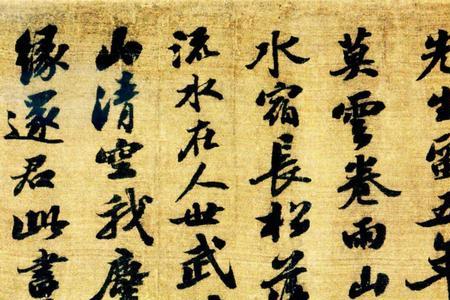 先生留五年
莫雲卷雨山
水宿長松落
流水在人世武
山清空我塵
緣遂君此書